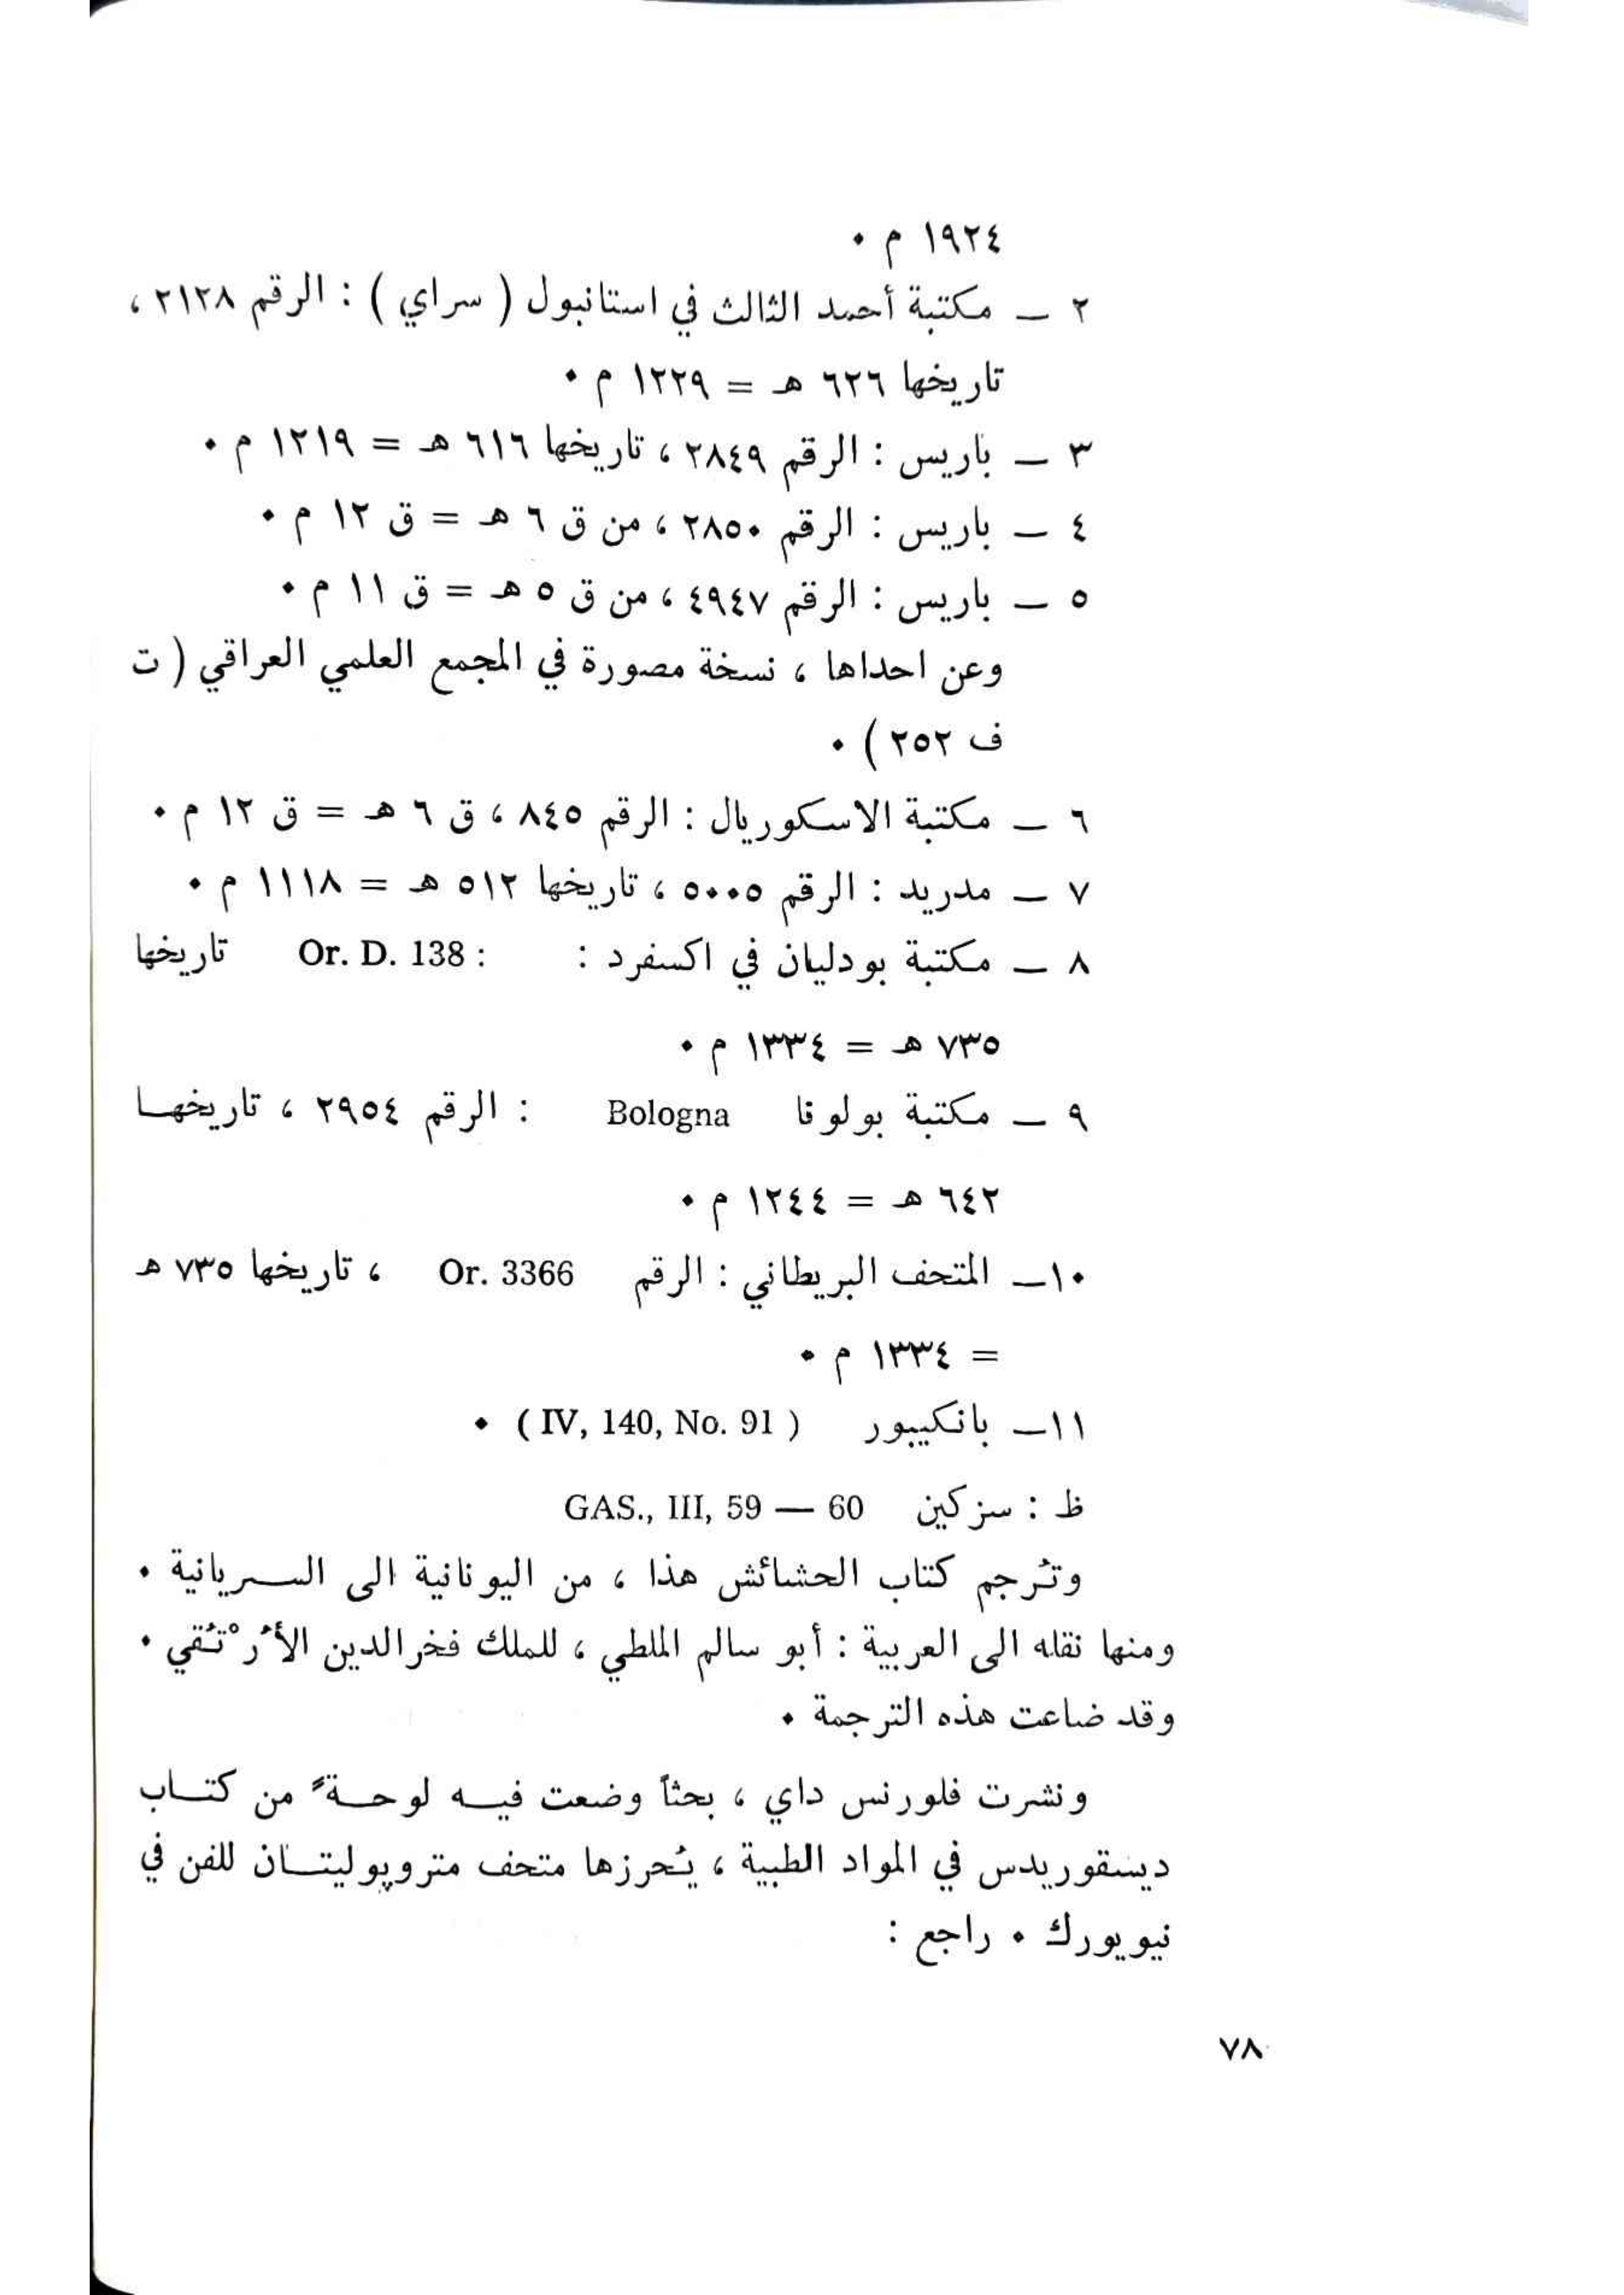 ١٩٢٤ م ٠
٢ ــ مكتبة أحمد الثالث في استانبول ( سراي ) : الرقم ٢١٢٨ ،
تاريخها ٦٢٦ هـ = ١٢٢٩ م ٠
٣ ــ باريس : الرقم ٢٨٤٩ ، تاريخها ٦١٦ هـ = ١٢١٩ م ٠
٤ ــ باريس : الرقم ٢٨٥٠ ، من ق ٦ هـ = ق ١٢ م ٠
٥ ــ باريس : الرقم ٤٩٤٧ ، من ق ٥ هـ = ق ١١ م ٠
وعن احداها ، نسخة مصورة في المجمع العلمي العراقي ( ت
ف ٢٥٢ ) ٠
٦ ــ مكتبة الاسكوريال : الرقم ٨٤٥ ، ق ٦ هـ = ق ١٢ م ٠
٧ ــ مدريد : الرقم ٥٠٠٥ ، تاريخها ٥١٢ هـ = ١١١٨ م ٠
٨ ــ مكتبة بودليان في اكسفرد : Or. D. 138 : تاريخها
٧٣٥ هـ = ١٣٣٤ م ٠
٩ ــ مكتبة بولونا Bologna : الرقم ٢٩٥٤ ، تاريخهـا
٦٤٢ هـ = ١٢٤٤ م ٠
١٠ــ المتحف البريطاني : الرقم Or. 3366 ، تاريخها ٧٣٥ هـ
= ١٣٣٤ م ٠
١١ــ بانكيبور ( IV, 140, No. 91 ) ٠
ظ : سزكين GAS., III, 59 — 60
وتُرجم كتاب الحشائش هذا ، من اليونانية الى السـريانية ٠
ومنها نقله الى العربية : أبو سالم الملطي ، للملك فخرالدين الأُرْتُقي ٠
وقد ضاعت هذه الترجمة ٠
ونشرت فلورنس داي ، بحثاً وضعت فيـه لوحـةً من كتـاب
ديسقوريدس في المواد الطبية ، يُحرزها متحف متروپوليتـان للفن في
نيويورك ٠ راجع :
٧٨